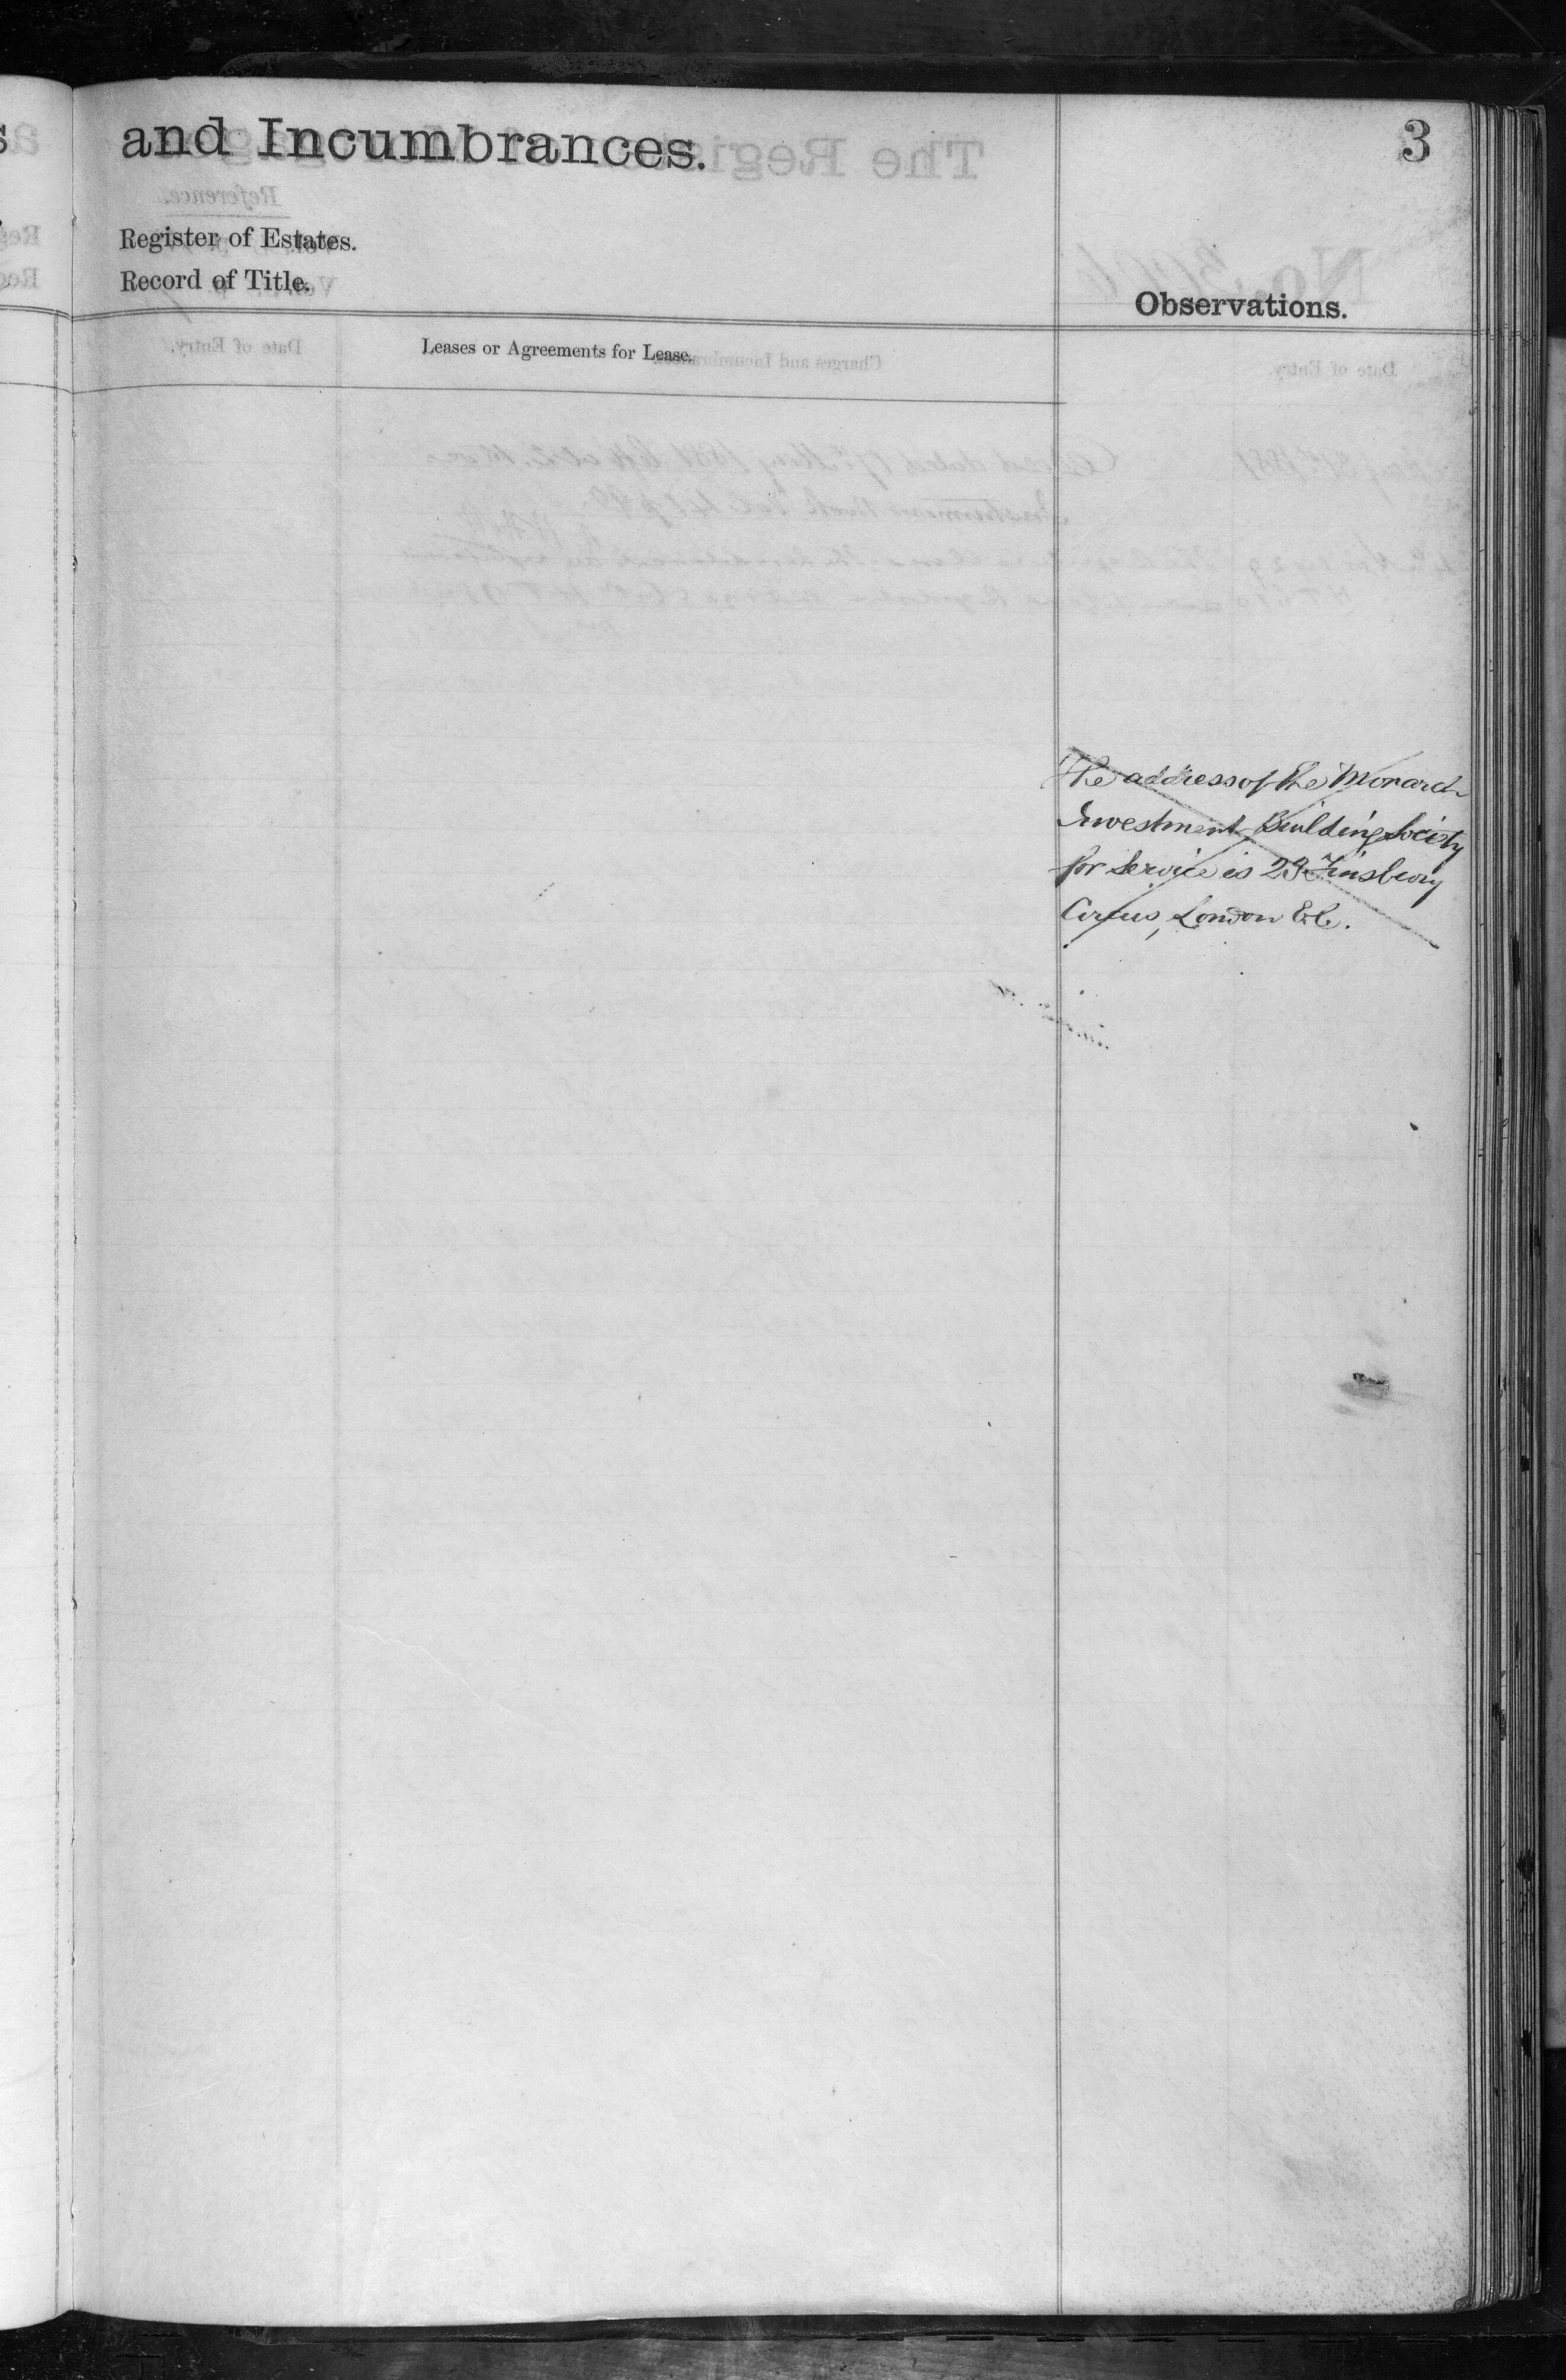 and Incumbrances.
3
Register of Estates.
Record of Title.
Observations.
Leases or Agreements for Lease.
The address of the Monarch
Investment Building Society
for Service is 23 Finsbury
Circus, London E.C.